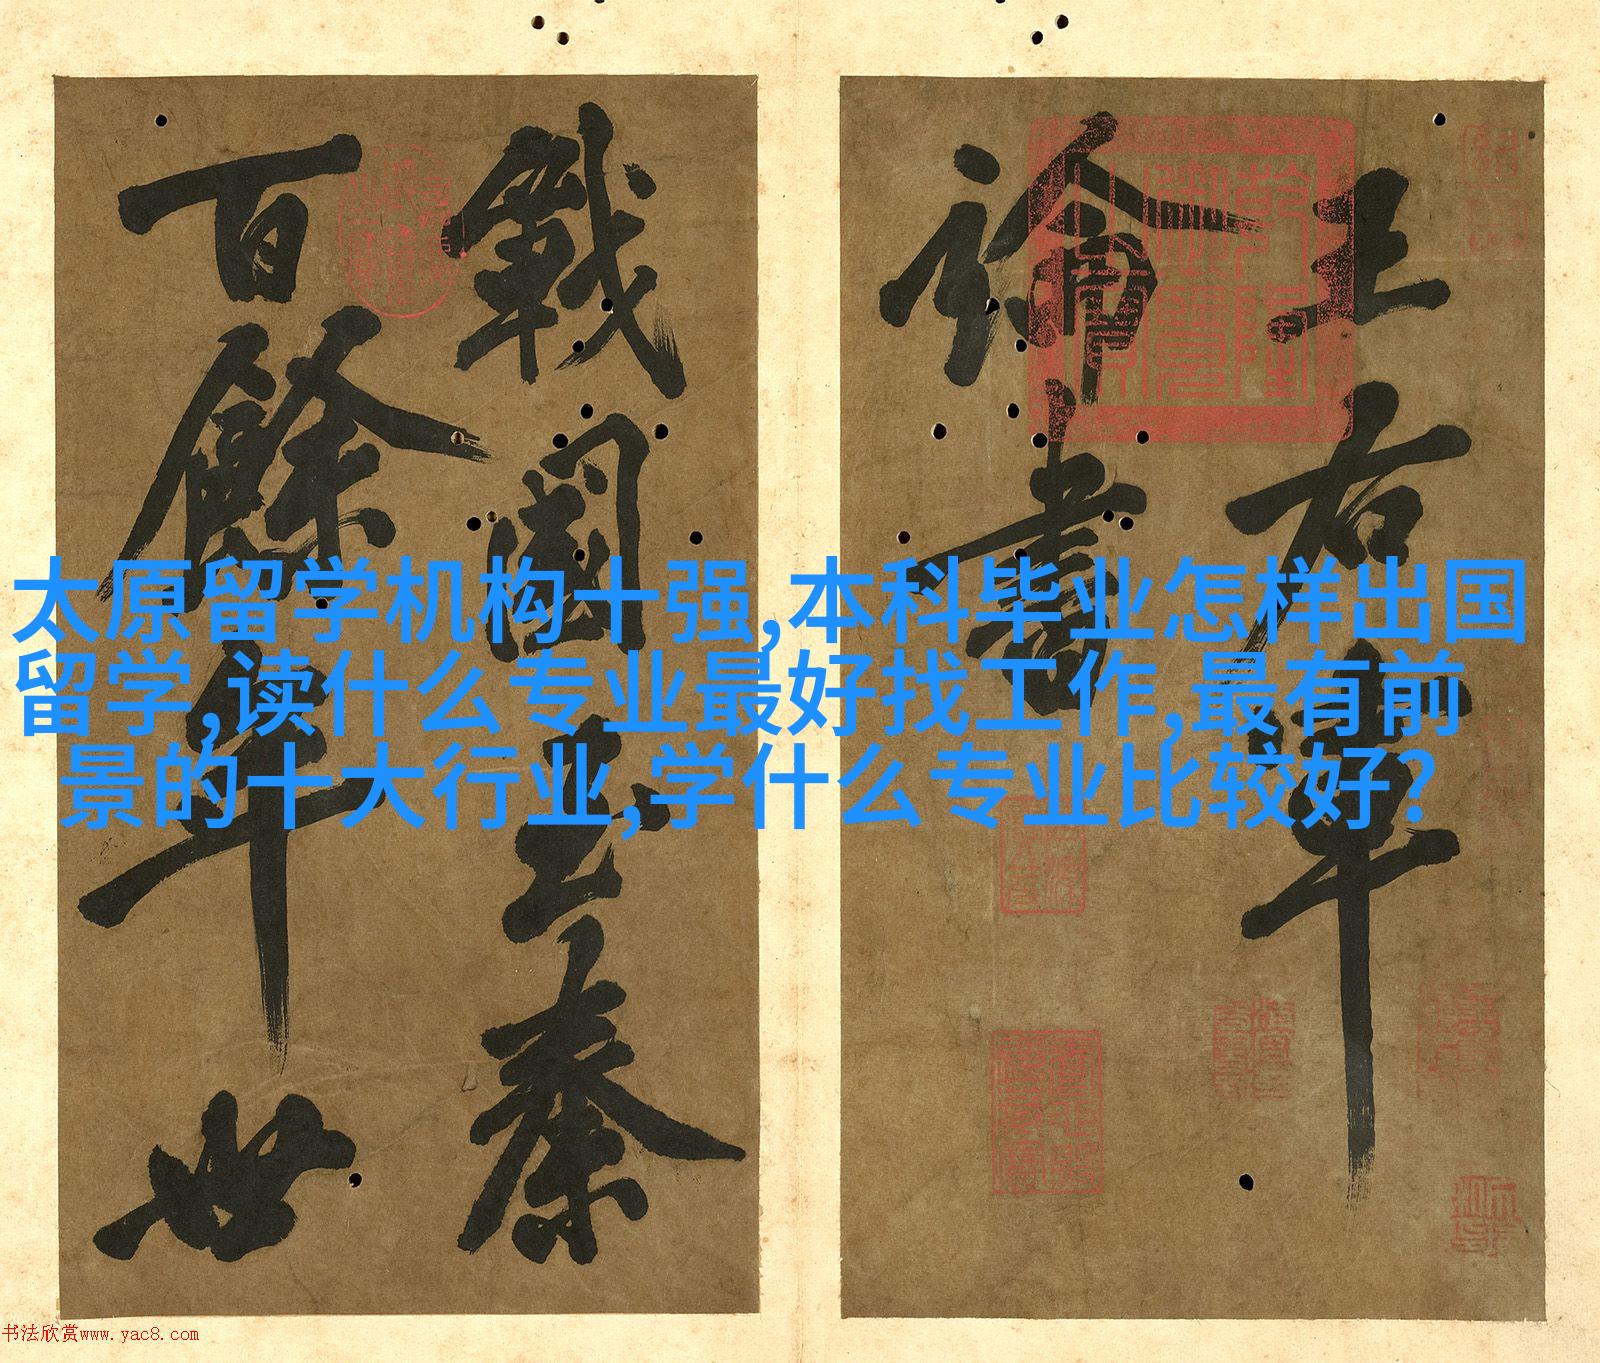 太原留学机构十强,本科毕业怎样出国
留学,读什么专业最好找工作,最有前
景的十大行业,学什么专业比较好?
王右軍
論書
戰國秦
百餘年世
书法欣赏www.yac8.com